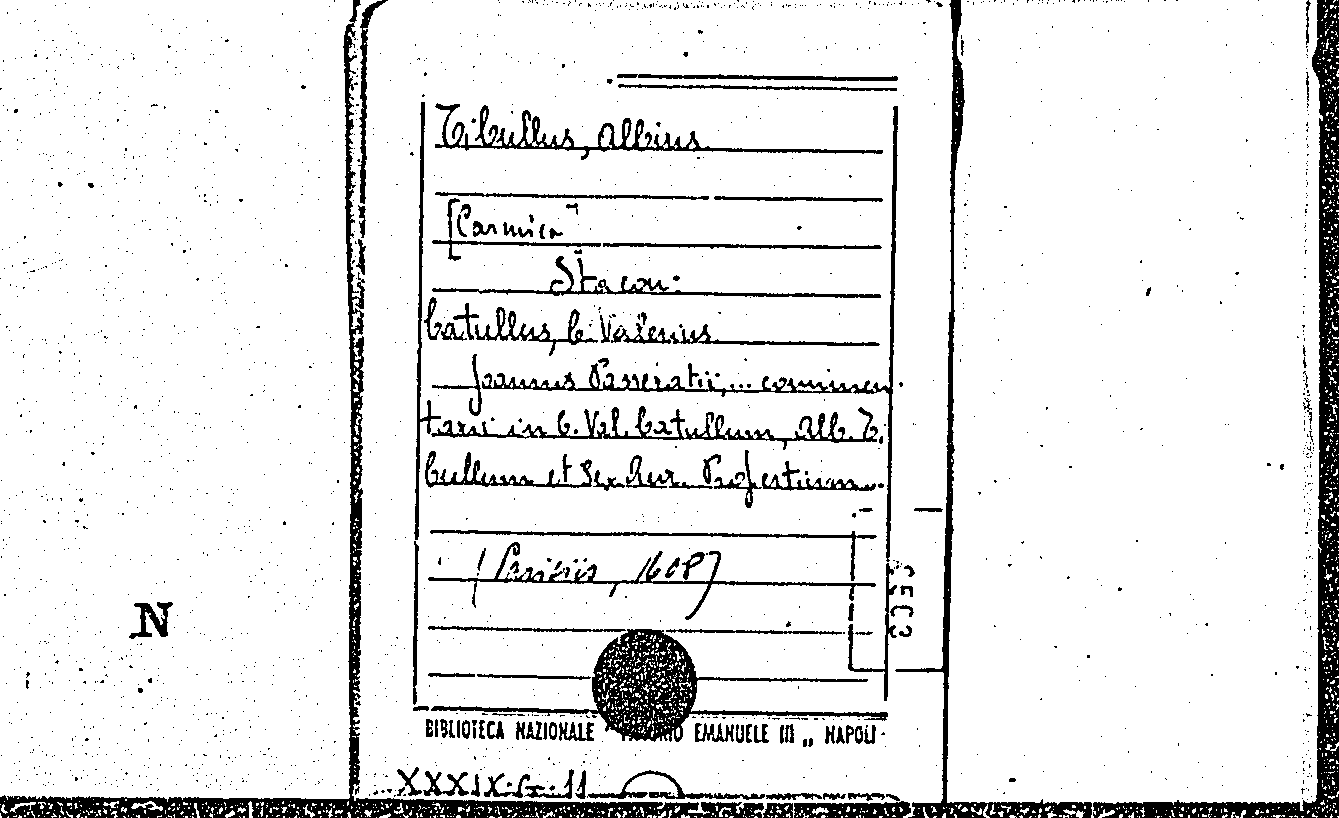 Tibullus, Albius
[Carmina]
Sta con:
Catullus, C. Valerius
Joannis Passeratii,... commen-
tarii in C. Val. Catullum, Alb. Ti-
bullum et Sex. Aur. Propertium.
(Parisiis, 1608)
N
BIBLIOTECA NAZIONALE " EMANUELE III „ NAPOLI